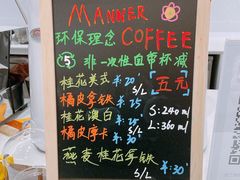 MANNER
环保理念 COFFEE
⑤ 非一次性自带杯减
五元
桂花美式 ¥20 S/L
橘皮拿铁 ¥25
桂花澳白 ¥25 S:240ml
橘皮摩卡 ¥30 L:360ml
S/L
燕麦桂花拿铁
S/L ¥30